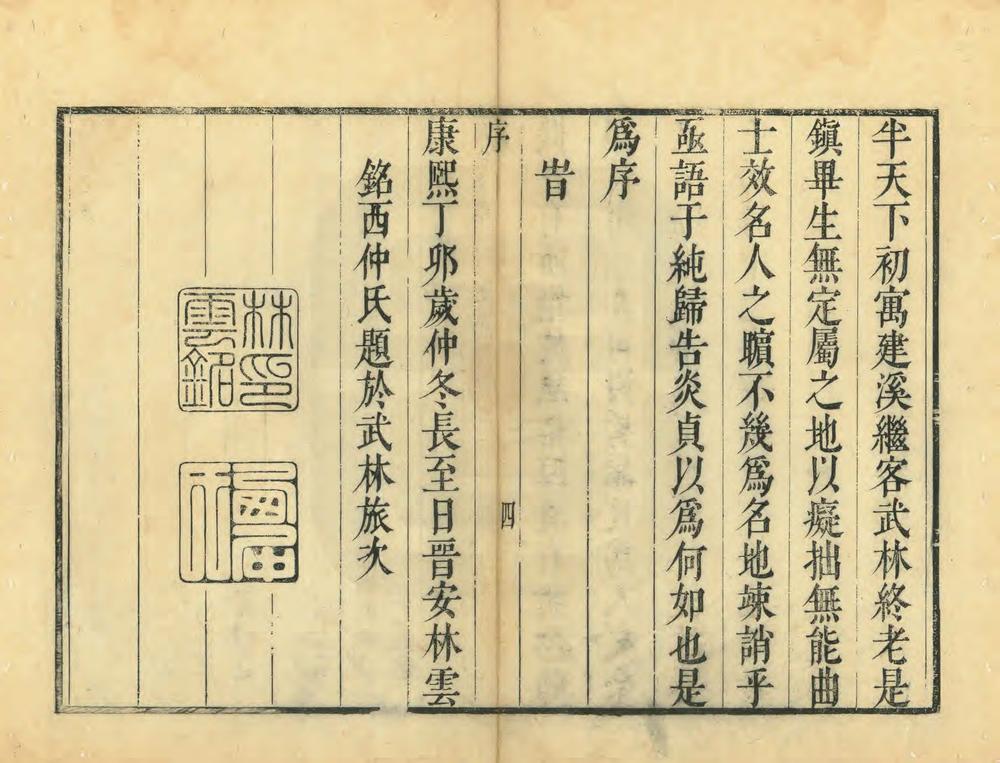 半天下初寓建溪繼客武林終老是
鎭畢生無定屬之地以癡拙無能曲
士效名人之矌不幾爲名地竦誚乎
亟語于純歸告炎貞以爲何如也是
爲序
旹
序
四
康熙丁卯歲仲冬長至日晋安林雲
銘西仲氏題於武林旅次
林雲銘印